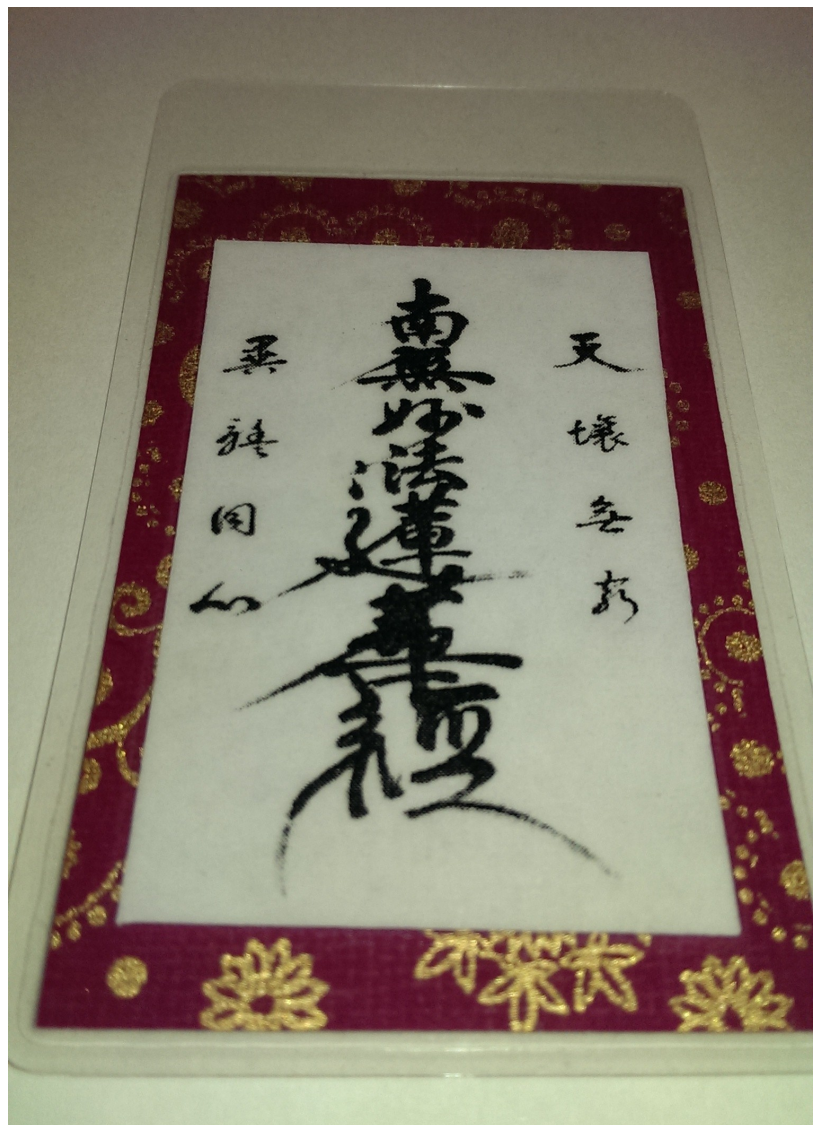 天壌無窮
南無妙法蓮華經
異體同心